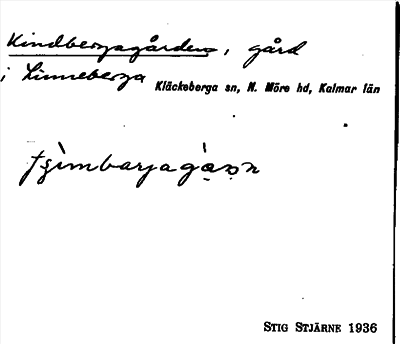 Kindbergagården, gård
i Linneberga Kläckeberga sn, N. Möre hd, Kalmar län
STIG STJÄRNE 1936